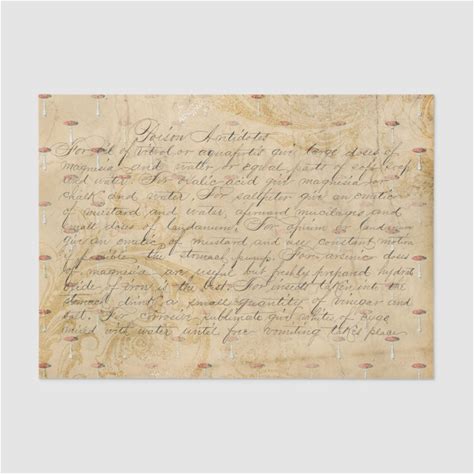 Poison Antidotes
For oil of vitriol or aquafortis give large doses of
magnesia and water or equal parts of soft soap
and water. For oxalic acid give magnesia or
chalk and water. For saltpeter give an emetic
of mustard and water, afterward mucilages and
small doses of laudanum. For opium or laudanum
give an emetic of mustard and use constant motion
if possible the stomach pump. For arsenic doses
of magnesia are useful but freshly prepared hydrated
oxide of iron is the best. For insects taken into the
stomach drink a small quantity of vinegar and
salt. For corrosive sublimate give whites of eggs
mixed with water until free vomiting takes place